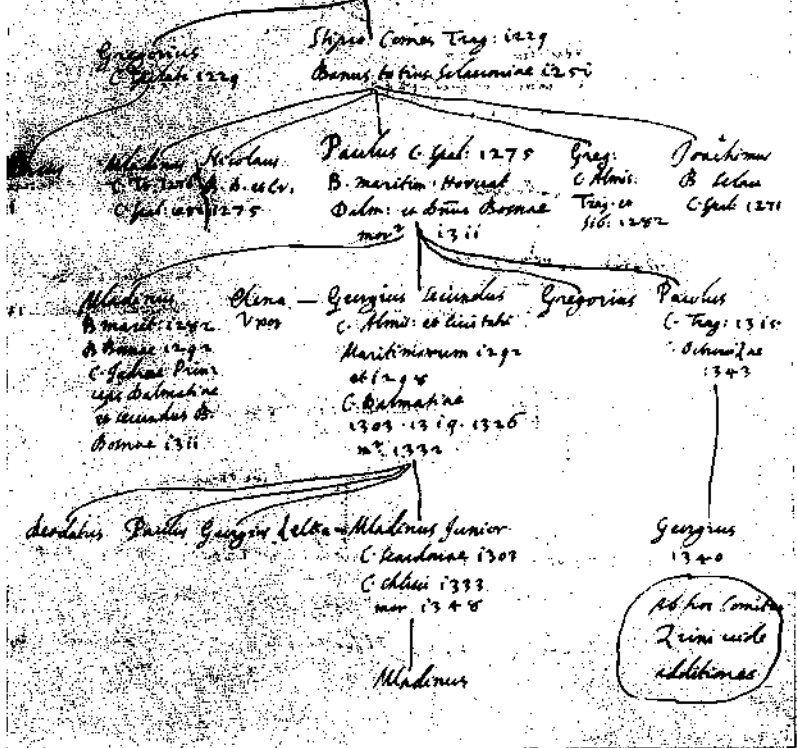 Gregorius
C. Spalati 1229
Stipco Comes Trag: 1229
Banus totius Sclavoniae 1251
Mladinus
C. Tr. 1276
C. Spal:
Nicolaus
1275
Paulus C. Spal: 1275
B. maritim. Horvat
Dalm: et Dnus Bosnae
morr 1311
Greg:
C Almis:
Trag: et
Sib: 1282
Joachimus
B Sclav
C. Spal: 1271
Mladinus
B marit: 1282
B Bosnae 1292
C. Jadrae Prin
ceps Dalmatiae
et secundus B.
Bosnae 1311
Elena
Vxor
Georgius secundus
C. Almis: et Civitatu
Maritimarum 1292
et 1298
C. Dalmatiae
1303 . 1319 . 1326
mr. 1332
Gregorius
Paulus
C. Trag: 1315
Ostrovizae
1343
Deodatus Paulus Georgius Lelka Mladinus Junior
C. Scardonae 1303
C. Chlissi 1333
mor 1348
Mladinus
Georgius
1340
Ab hoc Comites
Zrini vide
additiones